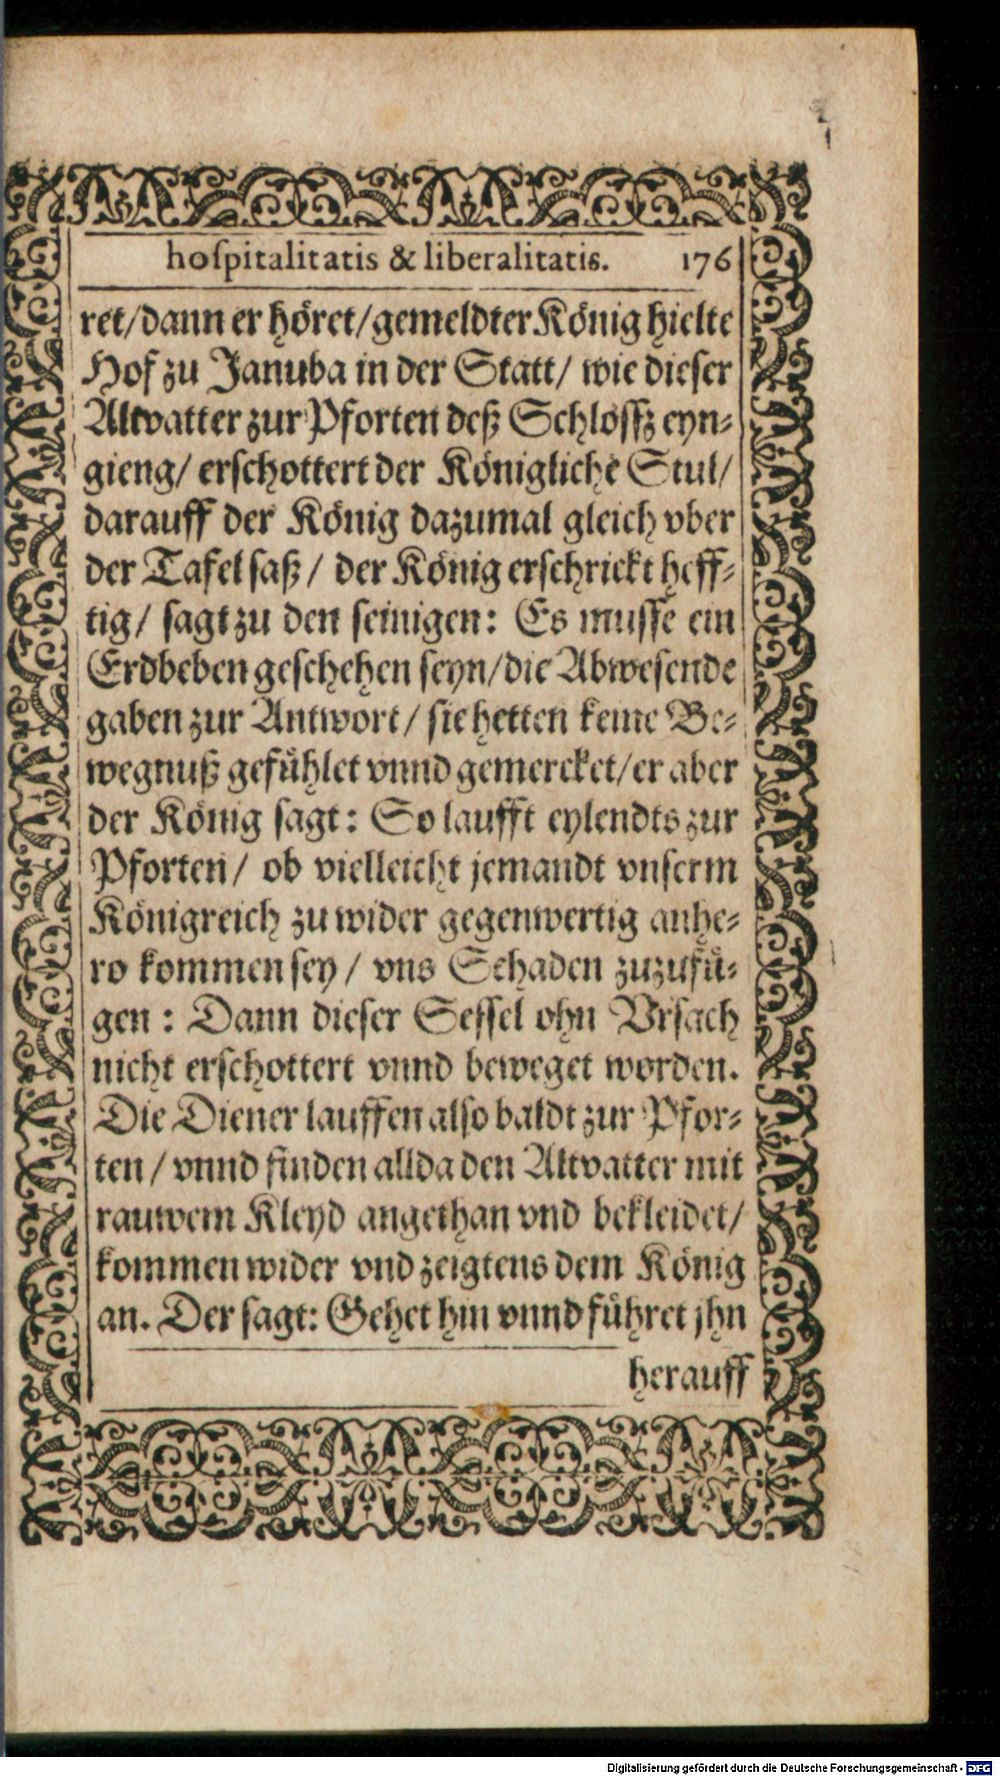 hospitalitatis & liberalitatis. 176
ret/dann er höret/gemeldter König hielte
Hof zu Januba in der Statt/ wie dieser
Altvatter zur Pforten deß Schlossz eyn-
gieng/ erschottert der Königliche Stul/
darauff der König dazumal gleich vber
der Tafel saß/ der König erschrickt heff-
tig/ sagt zu den seinigen: Es musse ein
Erdbeben geschehen seyn/die Abwesende
gaben zur Antwort/ sie hetten keine Be-
wegnuß gefühlet vnnd gemercket/er aber
der König sagt: So laufft eylendts zur
Pforten/ ob vielleicht jemandt vnserm
Königreich zu wider gegenwertig anhe-
ro kommen sey/ vns Schaden zuzufü-
gen: Dann dieser Sessel ohn Vrsach
nicht erschottert vnnd beweget worden.
Die Diener lauffen also baldt zur Pfor-
ten/ vnnd finden allda den Altvatter mit
rauwem Kleyd angethan vnd bekleidet/
kommen wider vnd zeigtens dem König
an. Der sagt: Gehet hin vnnd führet jhn
herauff
Digitalisierung gefördert durch die Deutsche Forschungsgemeinschaft - DFG